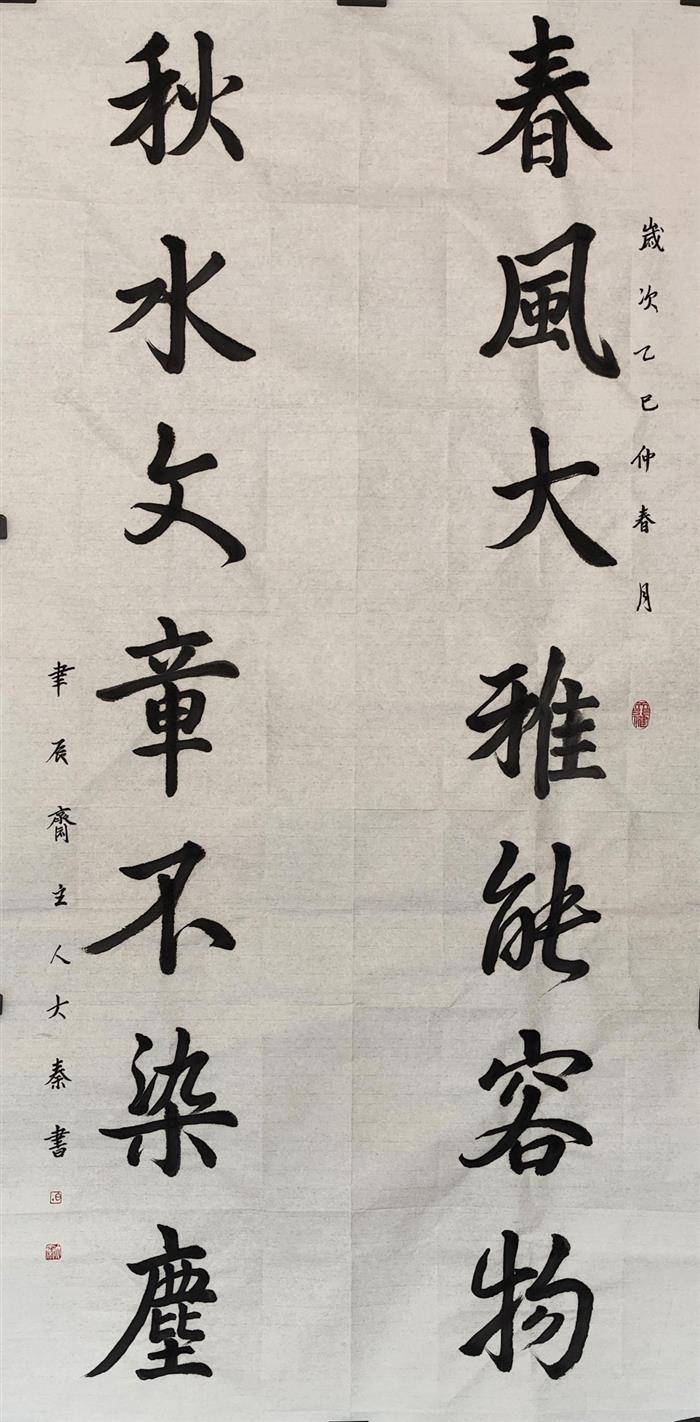 春風大雅能容物
歲次乙巳仲春月
秋水文章不染塵
聿辰齋主人大秦書